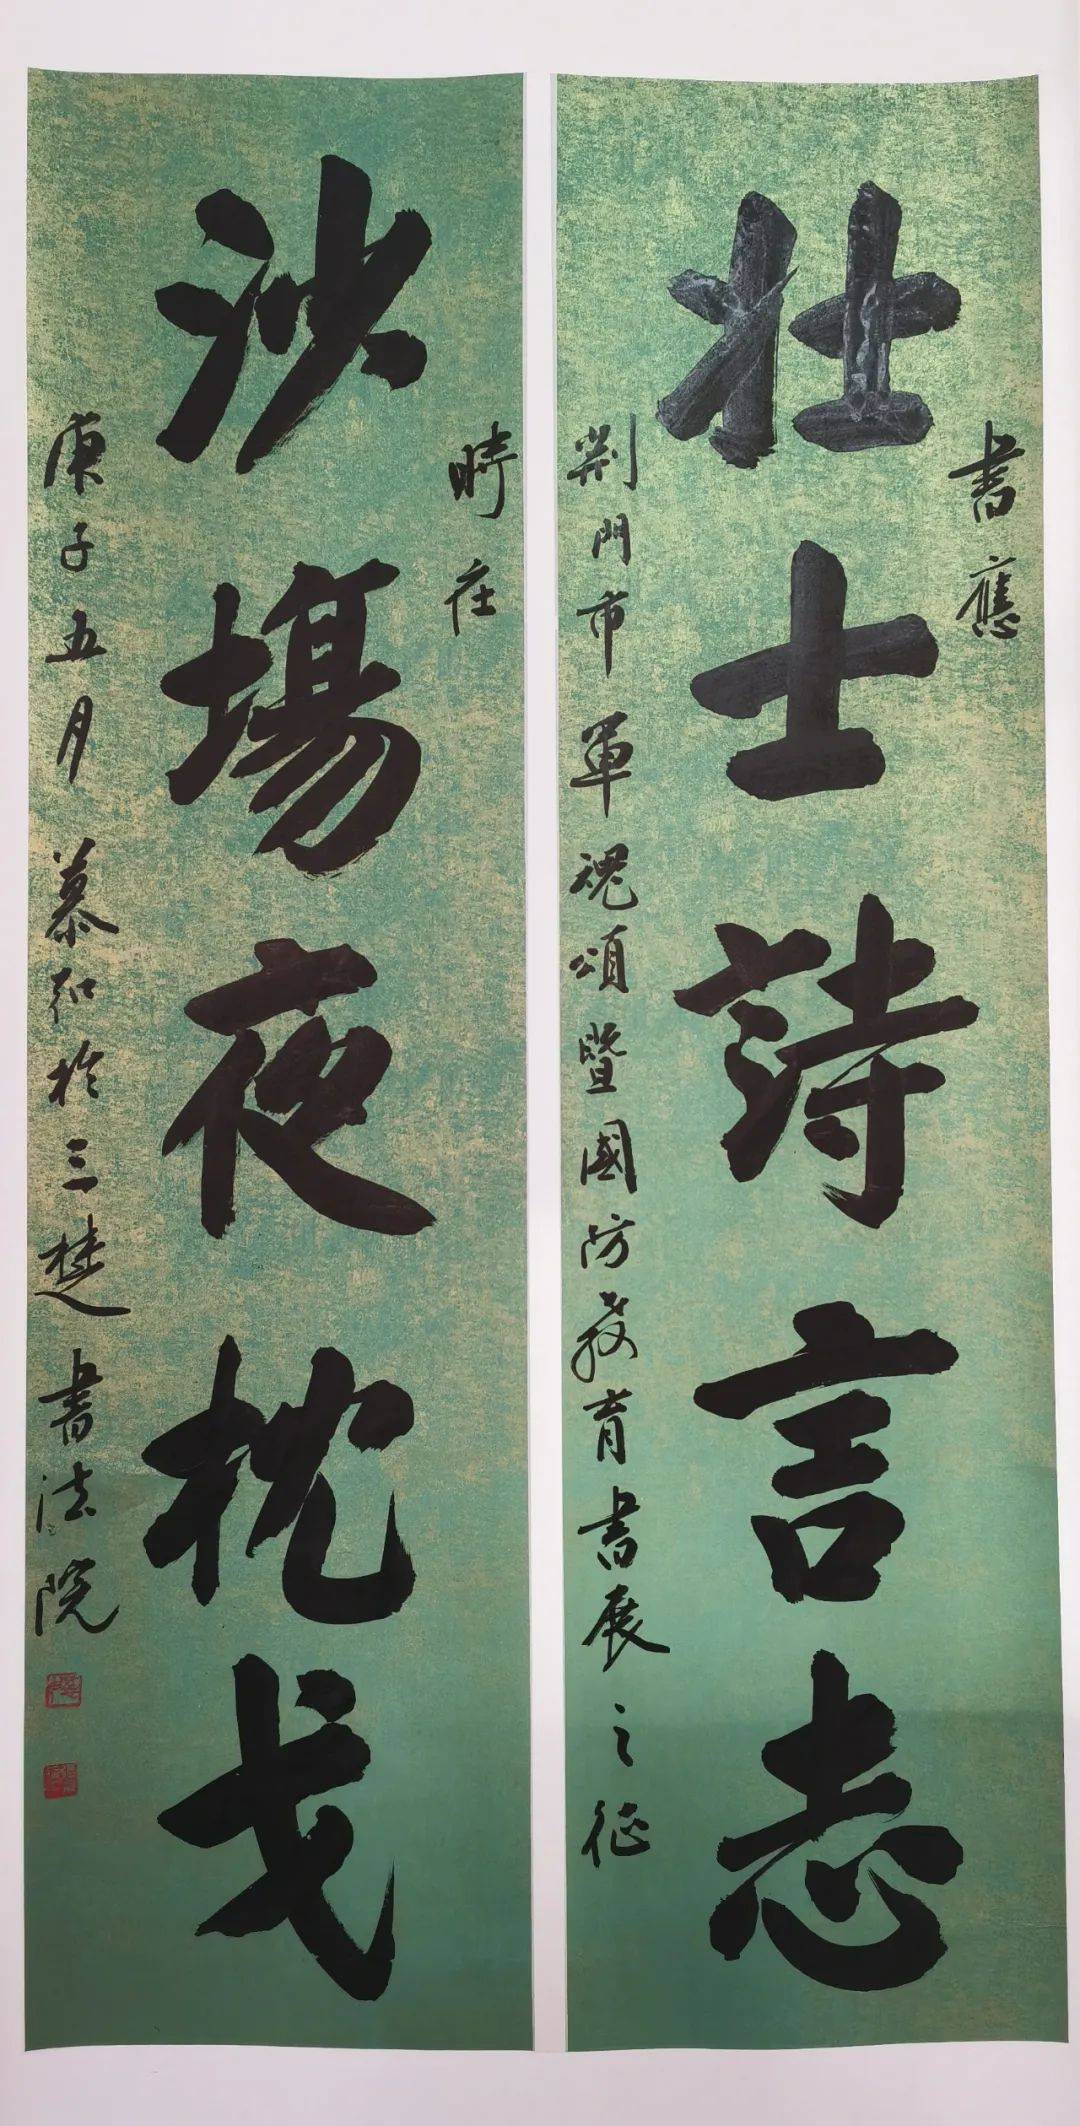 壯士詩言志
書應
荆門市軍魂頌暨國防教育書展之征
沙場夜枕戈
時在
庚子五月慕弘於三楚書法院